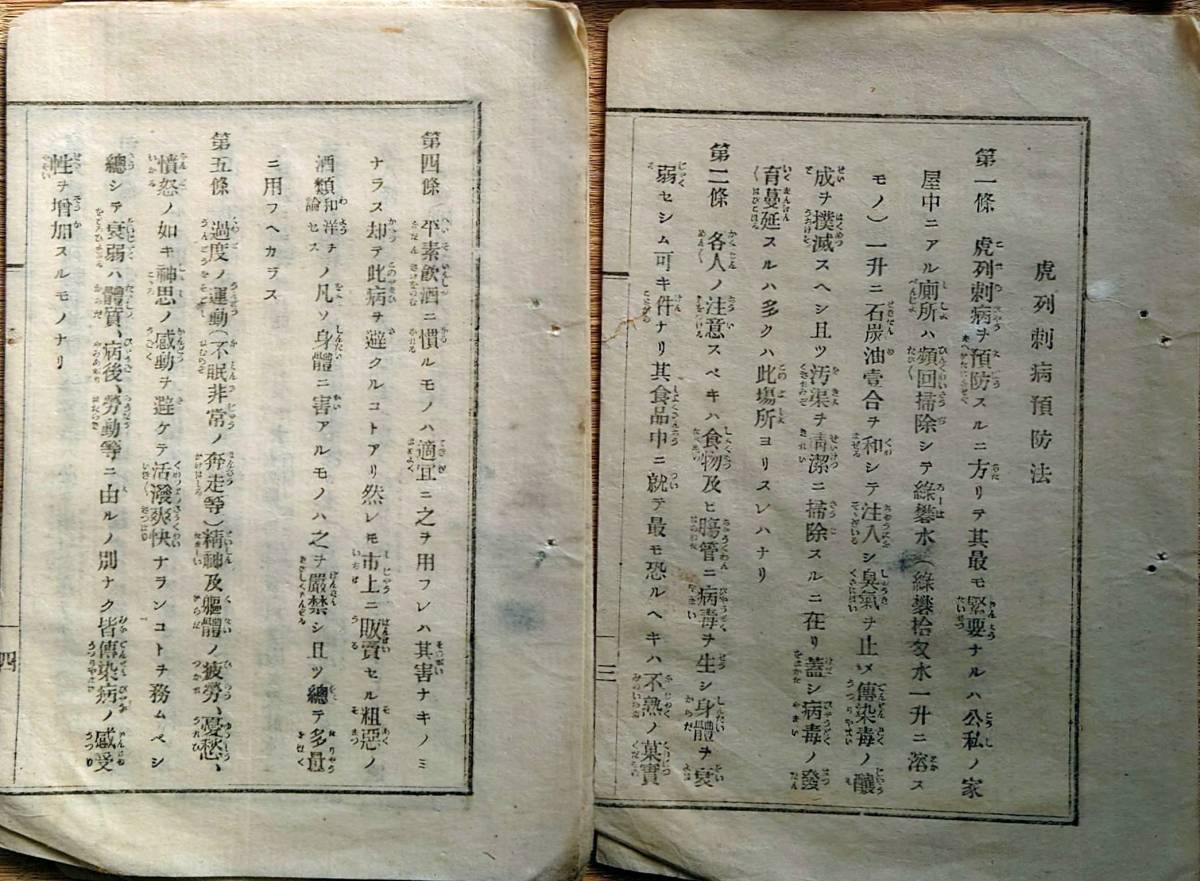 虎列刺病預防法
第一條 虎列刺病ヲ預防スルニ方リテ其最モ緊要ナルハ公私ノ家
屋中ニアル廁所ハ頻回掃除シテ綠礬水(綠礬拾匁水一升ニ溶ス
モノ)一升ニ石炭油壹合ヲ和シテ注入シ臭氣ヲ止メ傳染毒ノ釀
成ヲ撲滅スヘシ且ツ汚渠ヲ淸潔ニ掃除スルニ在リ蓋シ病毒ノ發
育蔓延スルハ多クハ此塲所ヨリスレハナリ
第二條 各人ノ注意スペキハ食物及ヒ膓管ニ病毒ヲ生シ身體ヲ衰
弱セシム可キ件ナリ其食品中ニ就テ最モ恐ルヘキハ不熟ノ菓實
三
第四條 平素飮酒ニ慣ルモノハ適宜ニ之ヲ用フレハ其害ナキノミ
ナラス却テ此病ヲ避クルコトアリ然レモ市上ニ販賣セル粗惡ノ
酒類和洋ヲ論セスノ凡ソ身體ニ害アルモノハ之ヲ嚴禁シ且ツ總テノ多量
ニ用フヘカラス
第五條 過度ノ運動(不眠非常ノ奔走等)精神及軀體ノ疲勞、憂愁、
憤怒ノ如キ神思ノ感動ヲ避ケテ活潑爽快ナランコトヲ務ムベシ
總シテ衰弱ハ體質、病後、勞動等ニ由ルノ別ナク皆傳染病ノ感受
性ヲ增加スルモノナリ
四